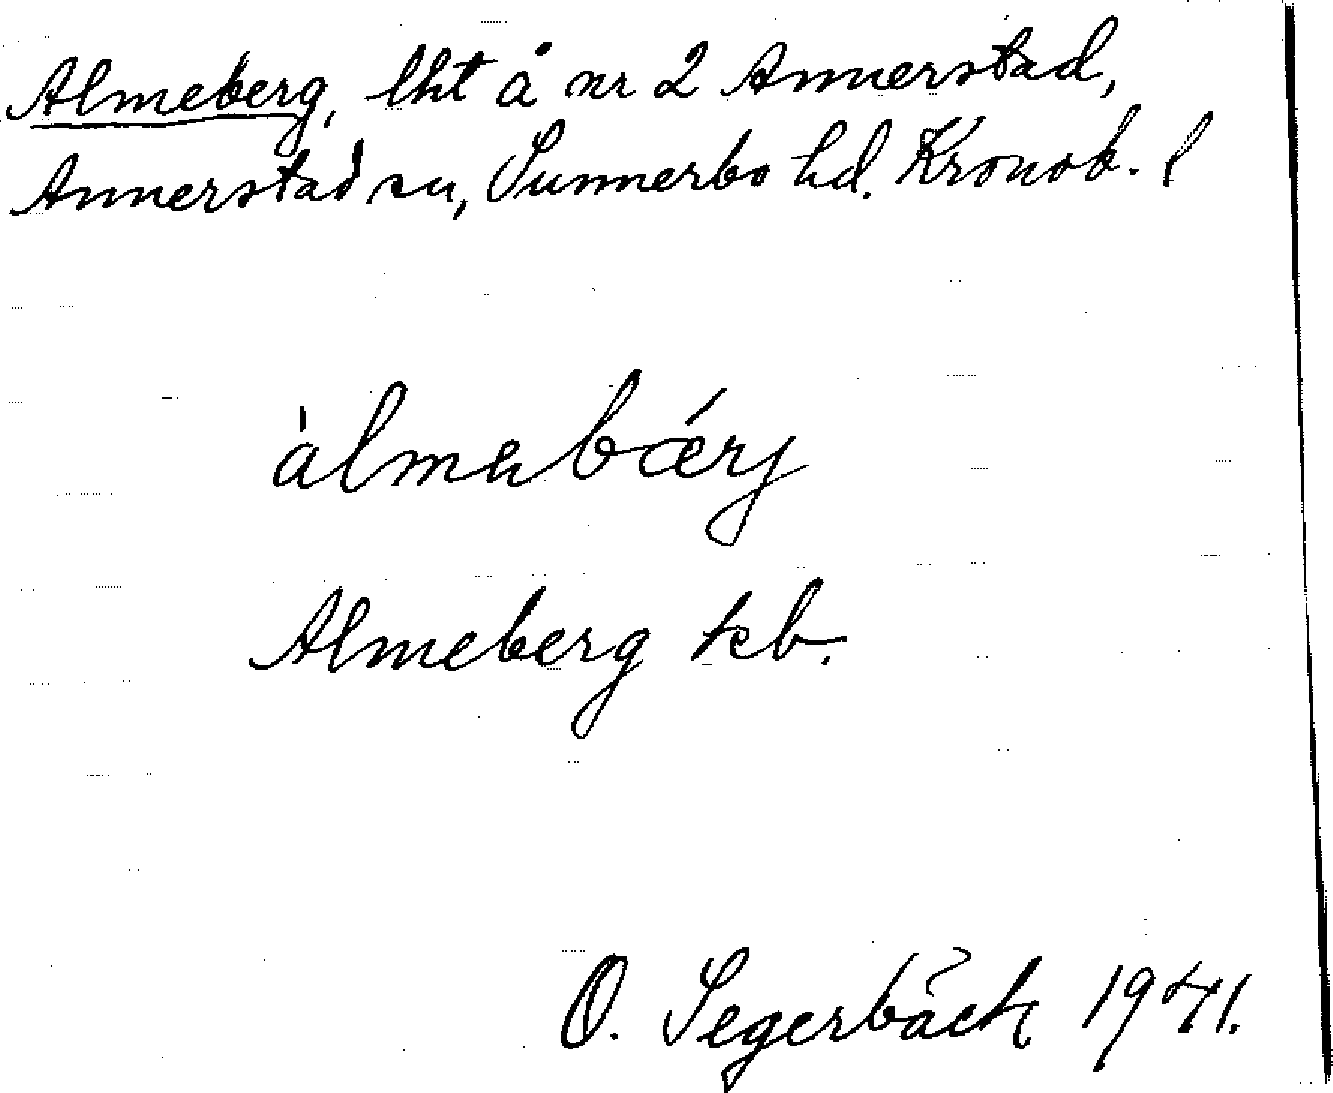 Almeberg, lht å nr 2 Annerstad,
Annerstad sn, Sunnerbo hd. Kronob. l
àlmabǽrj
Almeberg kb.
O. Segerbäck 1941.